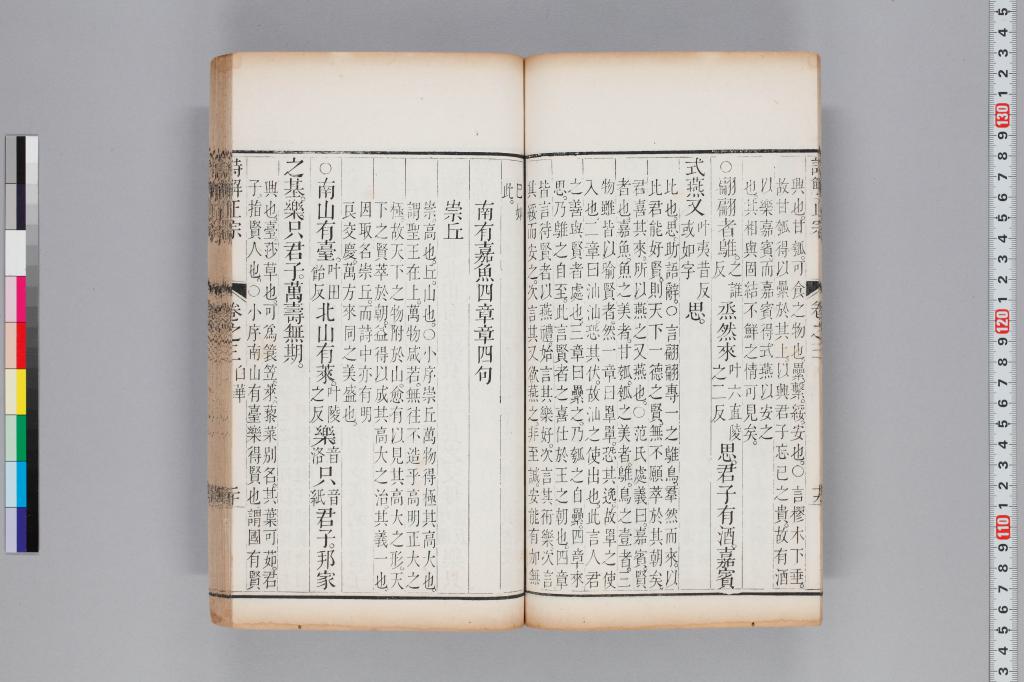 詩解正宗 卷之三
興也甘瓠可食之物也纍繫綏安也○言樛木下垂
故甘瓠得以纍於其上以興君子忘已之貴故有酒
以樂嘉賓而嘉賓得式燕以安之
也其相與固結不鮮之情可見矣
○翩翩者鵻之誰反烝然來叶六直陵之二反思君子有酒嘉賓
式燕又叶夷昔反或如字思
此也思助語辭○言翩翩專一之鵻鳥羣然而來以
此君能好賢則天下一德之賢無不願萃於其朝矣
君喜其來所以燕之又燕也○范氏處義曰嘉賓賢
者也嘉魚魚之美者甘瓠瓠之美者鵻鳥之壹者三
物雖皆以喻賢者然一章曰罩罩恐其逸故罩之使
入也二章曰汕汕恐其伏故汕之使出也此言人君
之善與賢者處也三章曰纍之乃瓠之自纍四章來
思乃鵻之自至此言賢者之喜仕於王之朝也四章
皆言待賢者以燕禮始言其樂好次言其衎樂次言
其綏而安之次言其又欲燕之非至誠安能有加無
已如此
南有嘉魚四章章四句
崇丘
崇高也丘山也○小序崇丘萬物得極其高大也
謂聖王在上萬物咸若無往不造乎高明正大之
極故天下之物附於山愈有以見其高大之形天
下之賢萃於朝益得以成其高大之治其義一也
因取名崇丘而詩中亦有明
良交慶萬方來同之美盛也
○南山有臺叶田飴反北山有萊叶陵之反樂音洛只音紙君子邦家
之基樂只君子萬壽無期
興也臺莎草也可為簑笠萊藜萊別名其葉可茹君
子指賢人也○小序南山有臺樂得賢也謂國有賢
詩解正宗 卷之三 白華 二十